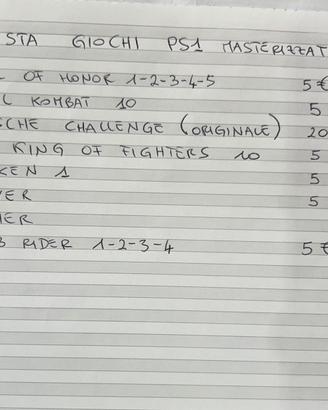 STA GIOCHI PS1 MASTERIZZAT
L OF HONOR 1-2-3-4-5 5 €
L KOMBAT 10 5
SCHE CHALLENGE (ORIGINALE) 20
KING OF FIGHTERS 10 5
KEN 1 5
VER 5
HER
B RIDER 1-2-3-4 5 €